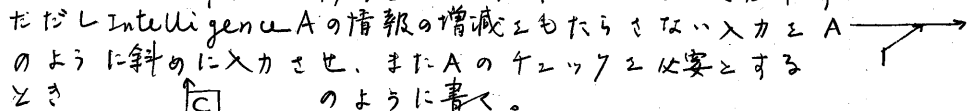 ただしIntelligence Aの情報の増減をもたらさない入力を A
I
のように斜めに入力させ、またAのチェックを必要とする
とき C のように書く。